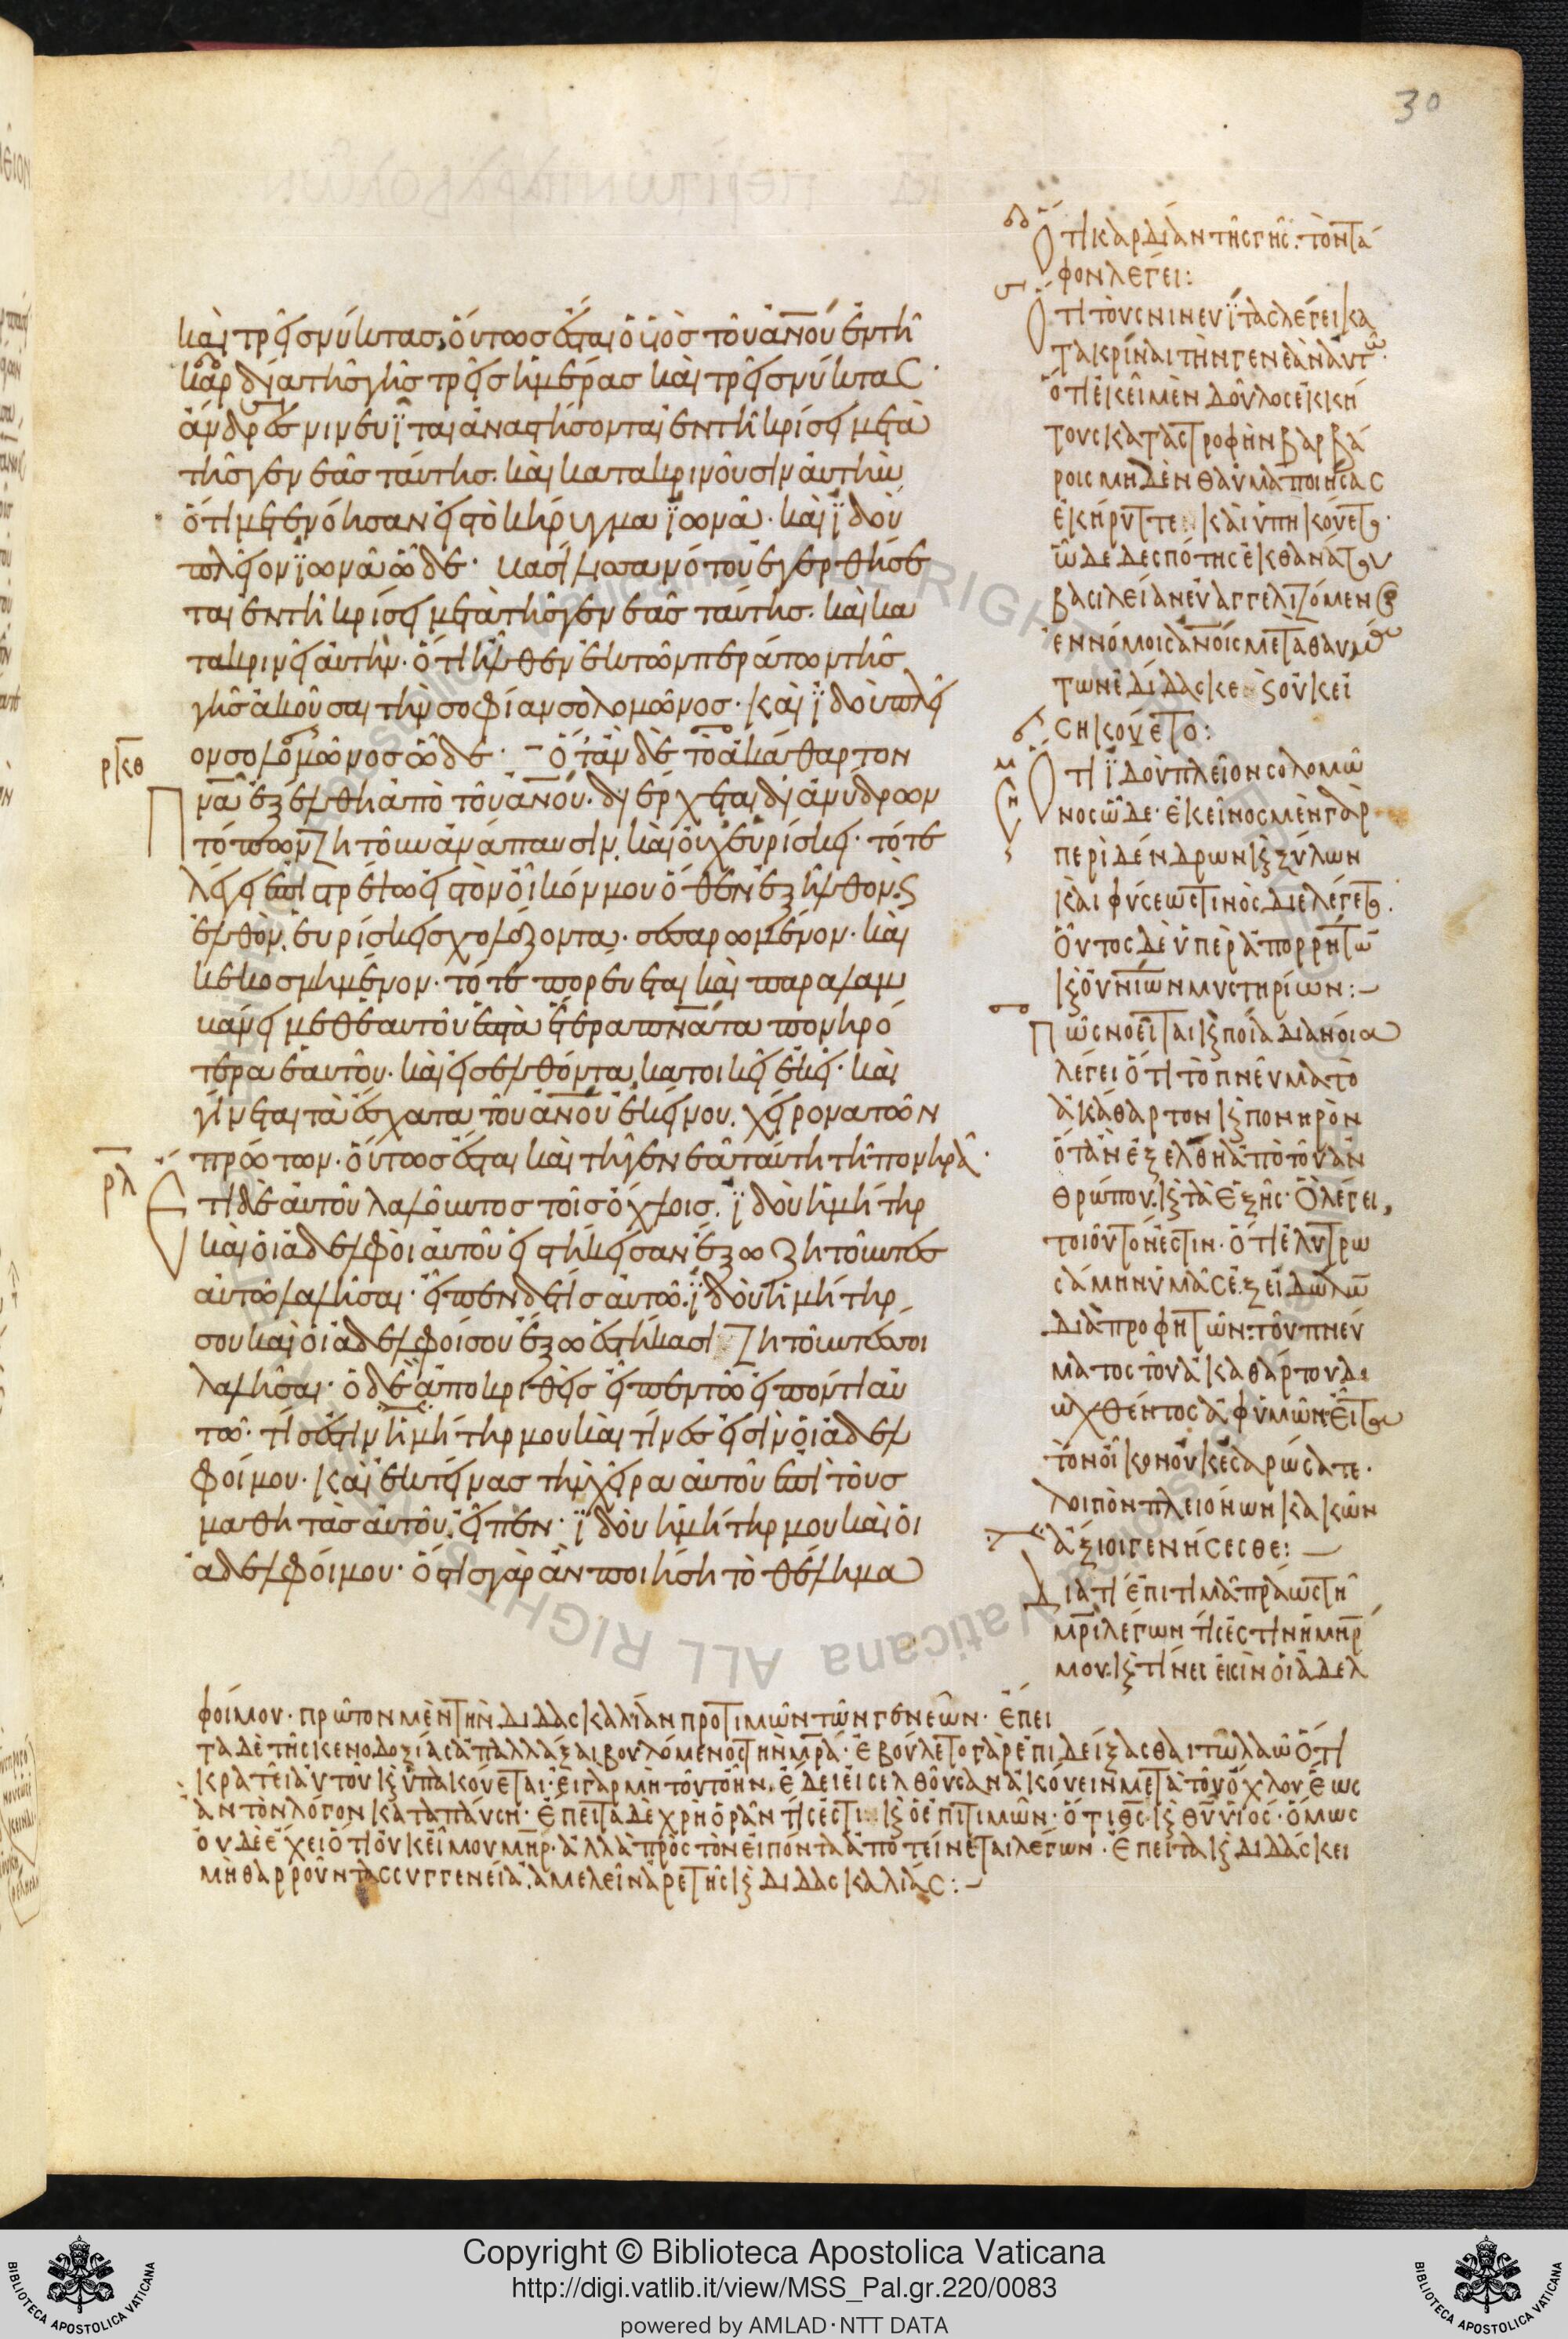 30
καὶ τρεῖς νύκτας, οὕτως ἔσται ὁ υἱὸς τοῦ ἀνου ἐν τῇ
καρδίᾳ τῆς γῆς τρεῖς ἡμέρας καὶ τρεῖς νύκτας·
ἄνδρες νινευϊται ἀναστήσονται ἐν τῇ κρίσει μετὰ
τῆς γενεᾶς ταύτης. καὶ κατακρινοῦσιν αὐτὴν
ὅτι μετενόησαν εἰς τὸ κήρυγμα ϊωνᾶ· καὶ ϊδοὺ
πλεῖον ϊωνᾶ ὧδε· βασίλισσα νότου ἐγερθήσε
ται ἐν τῇ κρίσει μετὰ τῆς γενεᾶς ταύτης. καὶ κα
τακρινεῖ αὐτὴν· ὅτι ἦλθεν ἐκ τῶν περάτων τῆς
γῆς ἀκοῦσαι τὴν σοφίαν σολομῶνος· καὶ ϊδοὺ πλεῖ
ον σολομῶνος ὧδε· ὅταν δὲ τὸ ἀκάθαρτον
ρκθ
πνα ἐξέλθη ἀπὸ τοῦ ἀνου· διέρχεται δι' ἀνύδρων
τόπων ζητοῦν ἀνάπαυσιν. καὶ οὐχ εὑρίσκει· τότε
λέγει ἐπιστρέψω εἰς τὸν οἶκόν μου ὅθεν ἐξῆλθον· ϛ
ἐλθὸν εὑρίσκει σχολάζοντα· σεσαρωμένον· καὶ
κεκοσμημένον· τότε πορεύεται καὶ παραλαμ
βάνει μεθ' ἑαυτοῦ ἑπτὰ ἕτερα πνατα πονηρό
τερα ἑαυτοῦ· καὶ εἰσελθόντα κατοικεῖ ἐκεῖ· καὶ
γίνεται τὰ ἔσχατα τοῦ ἀνου ἐκείνου. χείρονα τῶν
πρώτων· οὕτως ἔσται καὶ τῇ γενεᾷ ταύτῃ τῇ πονηρᾷ·
ρλ
Ἔτι δὲ αὐτοῦ λαλοῦντος τοῖς ὄχλοις. ϊδοὺ ἡ μήτηρ
καὶ οἱ ἀδελφοὶ αὐτοῦ εἱστήκεισαν ἔξω ζητοῦντες
αὐτῷ λαλῆσαι· εἶπεν δέ τις αὐτῷ. ϊδοὺ ἡ μήτηρ
σου καὶ οἱ ἀδελφοί σου ἔξω ἑστήκασι ζητοῦντές σοι
λαλῆσαι· ὁ δὲ ἀποκριθεὶς εἶπεν τῷ εἰπόντι αὐ
τῷ· τίς ἐστιν ἡ μήτηρ μου καὶ τίνες εἰσὶν οἱ ἀδελ
φοί μου· καὶ ἐκτείνας τὴν χεῖρα αὐτοῦ ἐπὶ τοὺς
μαθητὰς αὐτοῦ, εἶπεν· ϊδοὺ ἡ μήτηρ μου καὶ οἱ
ἀδελφοί μου· ὅστις γὰρ ἂν ποιήσῃ τὸ θέλημα
Ὅτι καρδίαν τῆς γῆς. τὸν τά
φον λέγει:
Ὅτι τοὺς νινευΐτας λέγει κα
τακρῖναι τὴν γενεὰν αὐτῶ·
ὅτι ἐκεῖ μὲν δοῦλος ἐκκη
τους καταστροφὴν βαρβά
ροις μηδὲν θαῦμα ποιήσας
ἐκήρυττε καὶ ὑπηκούετο·
ὧδε δεσπότης ἐκ θανάτου
βασιλείαν εὐαγγελιζόμενος
ἐννόμοις ἀνοις μετὰ θαυμά
των ἐδίδασκε ϛ οὐκ εἰ
σηκούετο:
Ὅτι ϊδοὺ πλεῖον σολομῶ
νος ὧδε· ἐκεῖνος μὲν γὰρ
περὶ δένδρων ϗ ξύλων
καὶ φύσεώς τινος διελέγετο.
Οὗτος δὲ ὑπὲρ ἀπορρήτω
ϗ οὐνίων μυστηρίων:
Πῶς νοεῖται ϗ ποία διανοία
λέγει ὅτι τὸ πνεῦμα τὸ
ἀκάθαρτον ϗ πονηρὸν
ὅταν ἐξελθη ἀπὸ τοῦ ἀν
θρώπου. ϗ τὰ ἑξῆς· Ὁ λέγει,
τοιοῦτον ἐστιν· ὅτι ἐλυτρω
σάμην ὑμᾶς ἐξ εἰδώλω
διὰ προφητῶν. τοῦ πνεύ
ματος τοῦ ἀκαθάρτου δι
ωχθέντος ἀφ' ὑμῶν. Εἶτα
τὸν οἶκον οὐκ ἐσαρώσατε·
λοιπὸν πλειόνων κακῶν
ἄξιοι γενήσεσθε:
Διατί ἐπιτιμᾶ πράως τῆ
μρι λέγων τίς ἐστιν ἡ μηρ
μου. ϗ τίνες εἰσὶν οἱ ἀδελ
φοί μου· πρῶτον μὲν τὴν διδασκαλίαν προτιμῶν τῶν γονεῶν· ἔπει
τα δὲ τῆς κενοδοξίας ἀπαλλάξαι βουλόμενος τὴν μρα· ἐβούλετο γὰρ ἐπιδείξασθαι τῶ λαῶ ὅτι
κρατεῖ αὐτοῦ ϗ ὑπακούεται· εἰ γὰρ μὴ τοῦτο ἦν, ἔδει εἰσελθοῦσαν ἀκούειν μετὰ τοῦ ὄχλου ἕως
ἂν τὸν λόγον καταπαύση· ἔπειτα δὲ χρὴ ὁρᾶν τίς ἐστι ϗ ὁ ἐπιτιμῶν· ὅτι θς ϗ θυ υἱός· ὅμως
οὐδὲ ἔχει ὅτι οὐκ εἶ μου μηρ· ἀλλὰ πρὸς τὸν εἰπόντα ἀποτείνεται λέγων· ἔπειτα ϗ διδάσκει
μὴ θαρροῦντας συγγενεία, ἀμελεῖν ἀρετῆς ϗ διδασκαλίας:
Copyright © Biblioteca Apostolica Vaticana
http://digi.vatlib.it/view/MSS_Pal.gr.220/0083
powered by AMLAD·NTT DATA
BIBLIOTECA APOSTOLICA VATICANA
BIBLIOTECA APOSTOLICA VATICANA